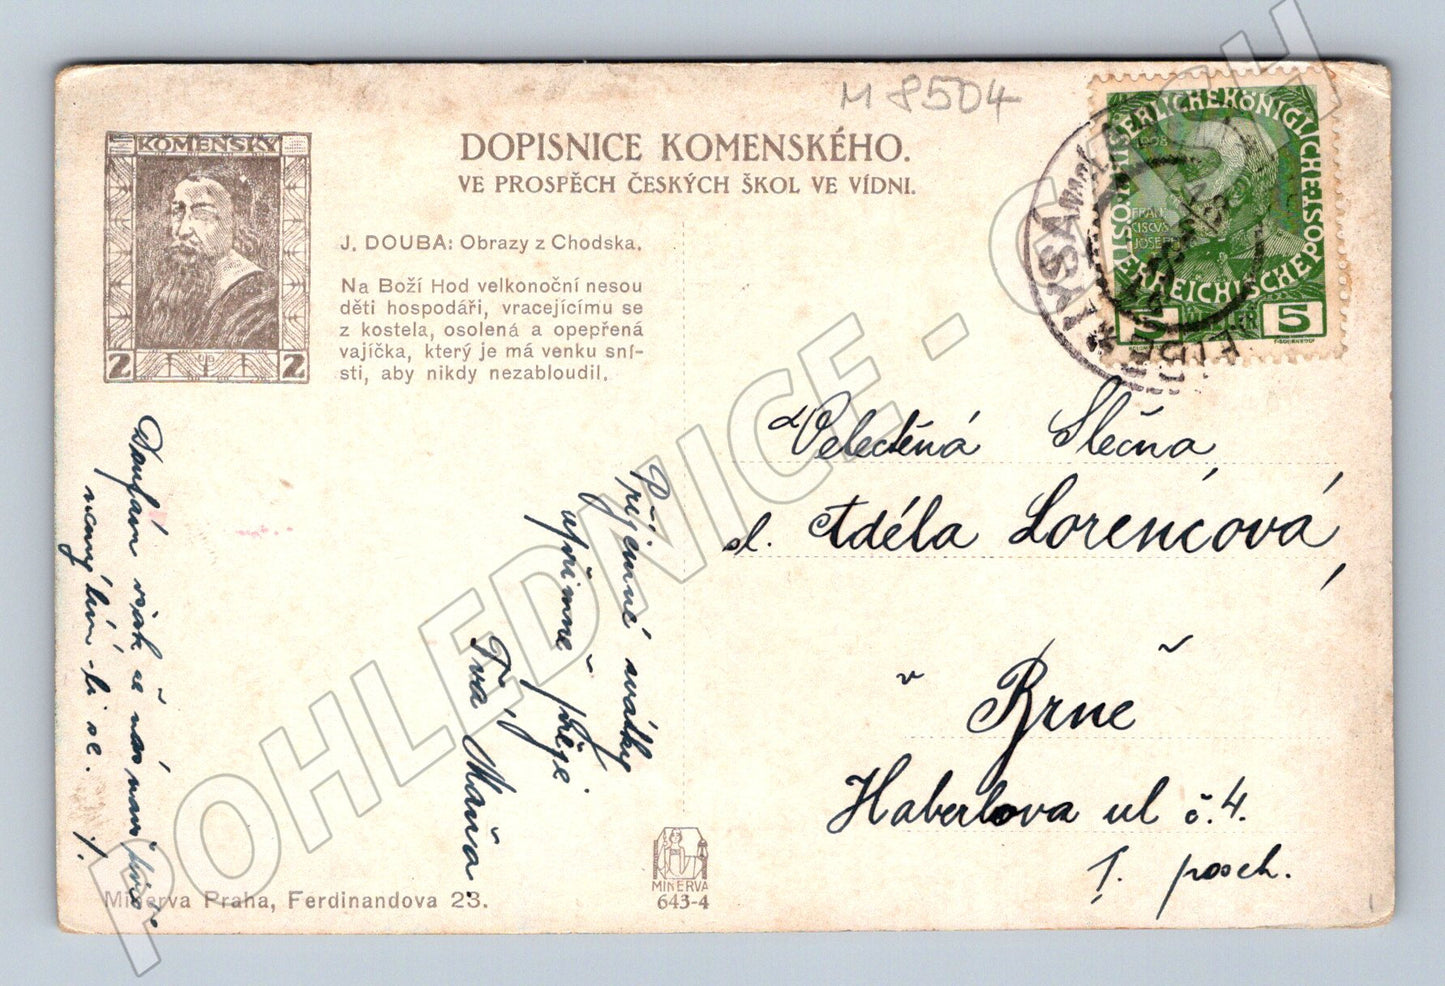 M 8504
KOMENSKÝ
2 2
DOPISNICE KOMENSKÉHO.
VE PROSPĚCH ČESKÝCH ŠKOL VE VÍDNI.
J. DOUBA: Obrazy z Chodska.
Na Boží Hod velkonoční nesou
děti hospodáři, vracejícímu se
z kostela, osolená a opepřená
vajíčka, který je má venku sní-
sti, aby nikdy nezabloudil.
KAISERLICHE KÖNIGLICHE ÖSTERREICHISCHE POST
1908
FRAN
CISCVS
JOSEF I
5 HELLER 5
Veleděná Slečna
sl. Adéla Lorencová
v Brně
Haberlova ul č. 4.
I. posch.
Příjemné svátky
upřímně přeje
Tvá Máňa
Doufám však že nás nam
li se.
MINERVA
643-4
Minerva Praha, Ferdinandova 23.
POHLEDNICE - CASH